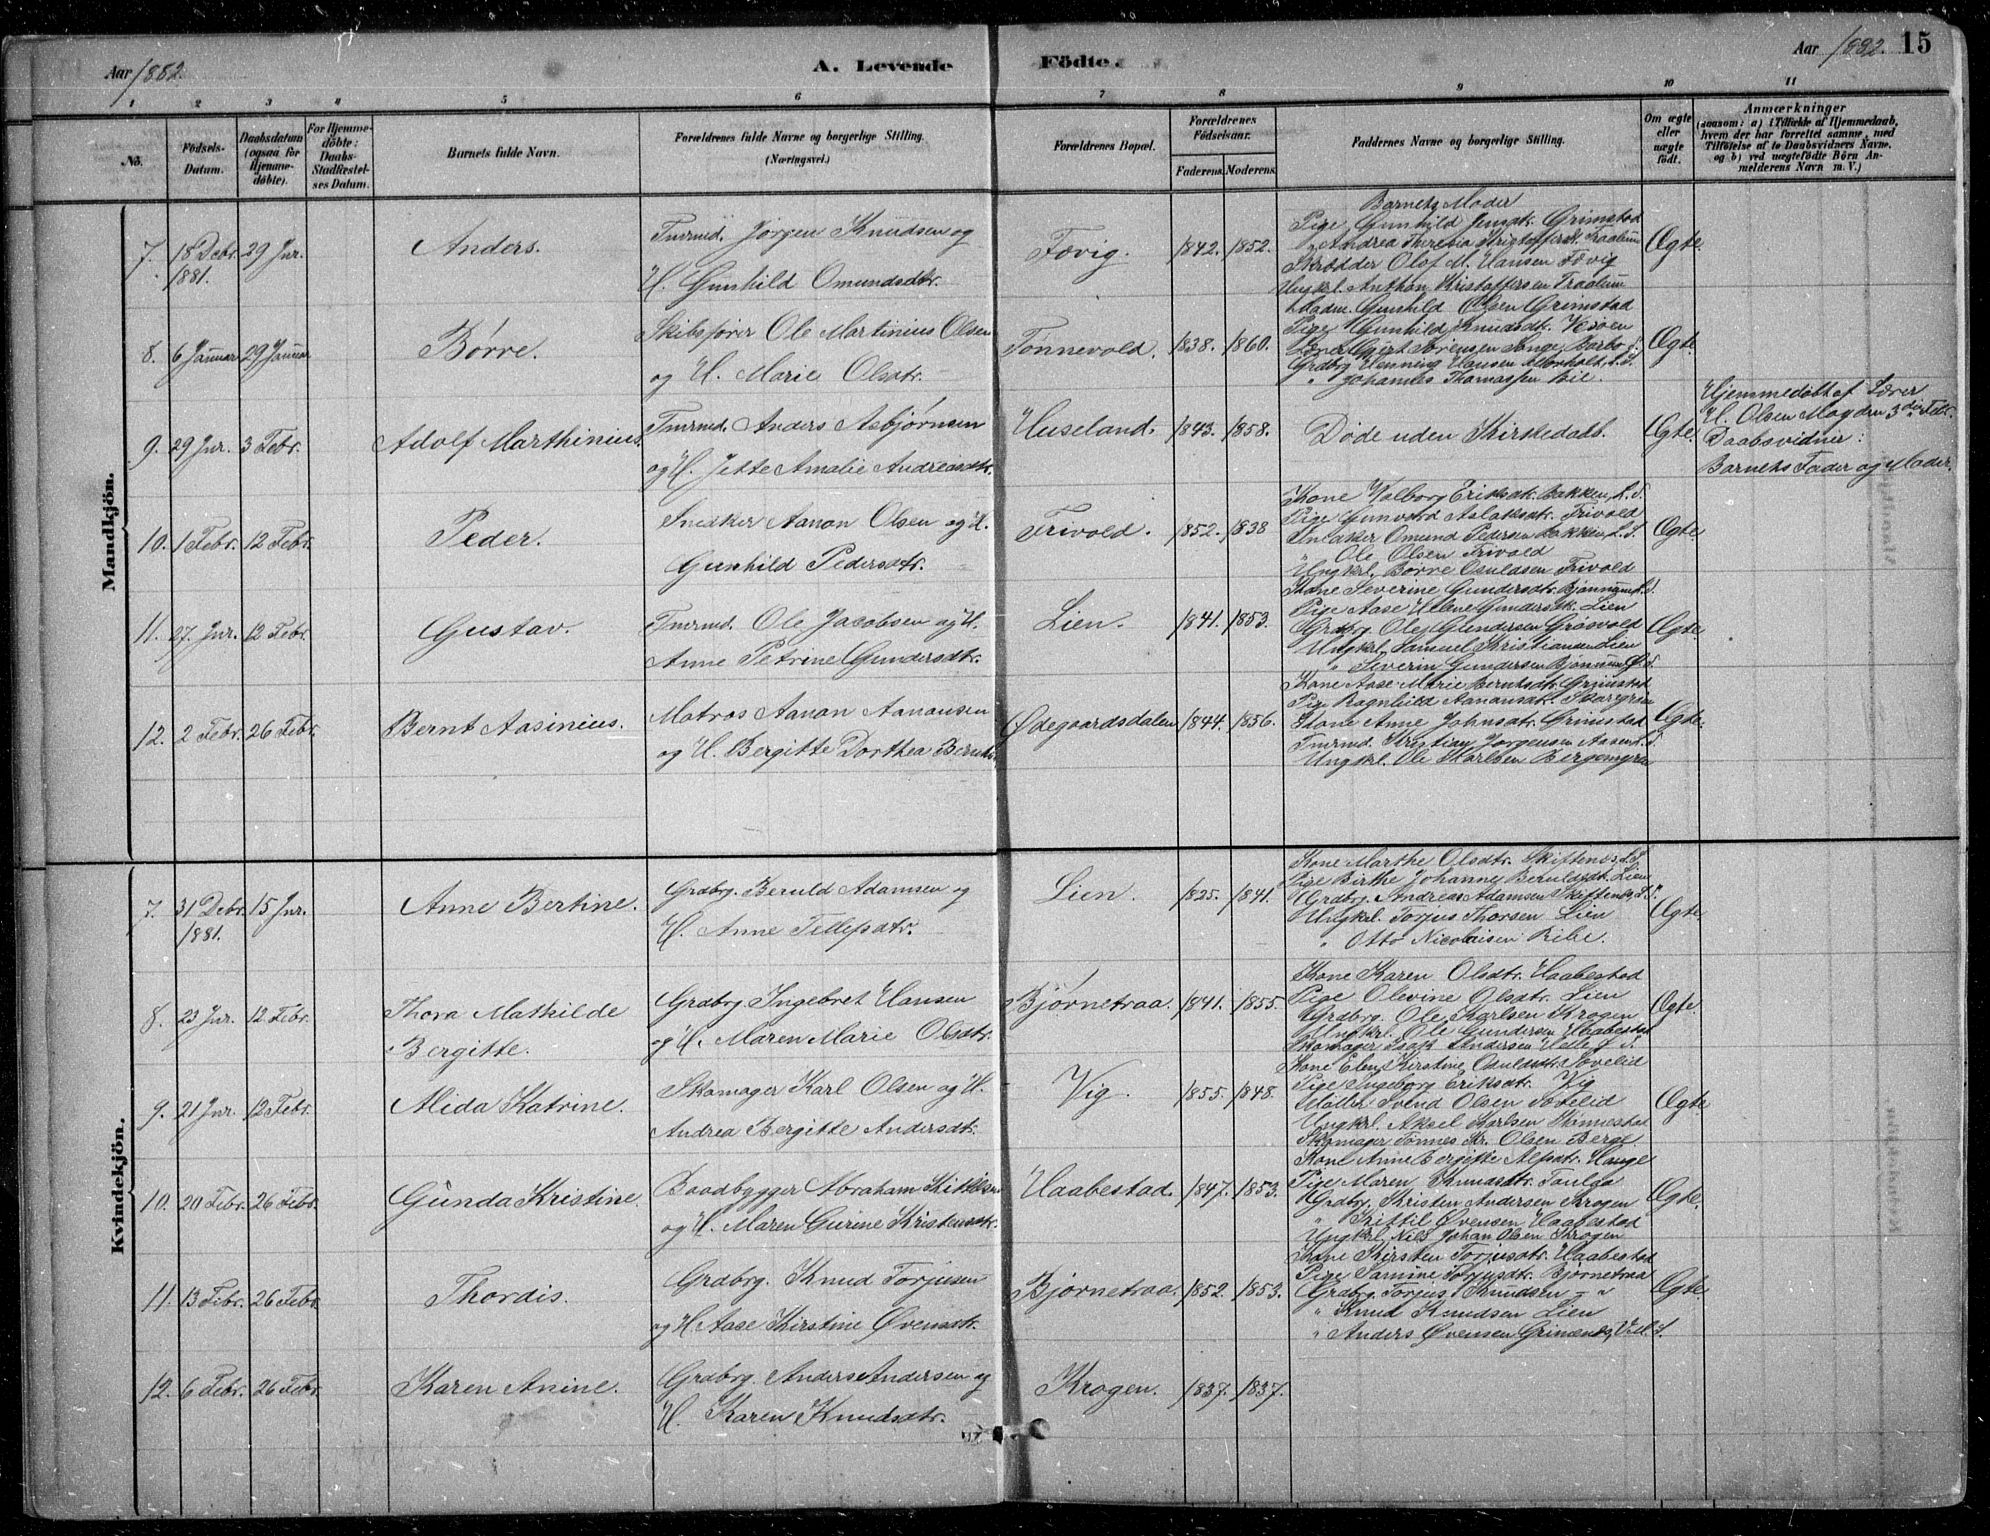 Aar 1882.
A. Levende Födte.
Aar 1882. 15
1 2 3 4 5 6 7 8 9 10 11
No.
Födsels-Datum.
Daabsdatum (ogsaa for Hjemme-döbte).
For Hjemme-döbte: Daabs-Stadfæstel-ses Datum.
Barnets fulde Navn.
Forældrenes fulde Navne og borgerlige Stilling.
(Næringsvei.)
Forældrenes Bopæl.
Forældrenes Födselsaar.
Faderens. Moderens.
Faddernes Navne og borgerlige Stilling.
Om ægte eller uægte födt.
Anmærkninger
(saasom: a) i Tilfælde af Hjemmedaab,
hvem der har forrettet samme, med
Tilföielse af to Daabsvidners Navne.
og b) ved uægtefödte Börn An-
melderens Navn m. V.)
Mandkjön.
7. 18 Debr. 1881. 29 Jnr. Anders.
Tmrmd. Jørgen Knudsen og
H. Gunhild Omundsdtr.
Fævig. 1842. 1852.
Barnets Moder
Pige Gunhild Jensdtr. Grimstad
" Andrea Theresia
Skrædder Olof M. Hansen Fævig
Ungkrl. Anthon Kristoffersen
Madm. Gunhild Olsen Grimstad
Ægte.
8. 6 Januar 29 Januar Børre.
Skibsfører Ole Martinius Olsen
og H. Marie Olsdtr.
Tønnevold. 1838. 1860.
Pige Gunhild Knudsdtr.
Gjert Sørensen
Grdbrg. Henning Hansen
" Johannes Thomassen Bie.
Ægte.
9. 29 Jnr. 3 Febr. Adolf Marthinius.
Tmrmd. Anders Asbjørnsen
og H. Jette Amalie Andreasdtr.
Huseland. 1843. 1858.
Døde uden Kirkedaab.
Ægte.
Hjemmedøbt af Lærer
H. Olsen Moy den 3die Febr.
Daabsvidner:
Barnets Fader og Moder.
10. 1 Febr. 12 Febr. Peder.
Snedker Aanon Olsen og H.
Gunhild Pedersdtr.
Frivold. 1852. 1838
Kone Valborg Eriksdt. Bakken, L. S.
Pige Gunvold Aslaksdtr. Frivold
Snedker Omund Pedersen Bakken, L. S.
" Ole Olsen Frivold
Ungkrl. Børre Osuldsen Frivold
Ægte
11. 27 Jnr. 12 Febr. Gustav.
Tmrmd. Ole Jacobsen og H.
Anne Petrine Gundersdtr.
Lien. 1841. 1853.
Kone Severine Gundersdtr.
Pige Aase Helene Gundersdt. Lien
Grdbrg. Ole Gundersen Grøsvold
Ungkrl. Samuel Kristiansen Lien
" Severin Gundersen
Ægte
12. 2 Febr. 26 Febr. Bernt Aasinius.
Matros Aanon Aanonsen
og H. Bergitte Dorthea
Ødegaardsdalen 1844. 1856.
Kone Aase Marie Berntsdt. Grimstad
Pige Ragnhild Aanonsdt.
Kone Anne Johnsdtr. Grimstad
Tmrmd. Kristian Jørgensen
Ungkrl. Ole Karlsen
Ægte.
Kvindekjön.
7. 31 Debr. 1881. 15 Jnr. Anne Bertine.
Grdbrg. Beruld Adamsen og
H. Anne Tellefsdtr.
Lien. 1825. 1841.
Kone Marthe Olsdtr. Skiftenes, L. S.
Pige Birthe Johanne Beruldsdt. Lien
Grdbrg. Andreas Adamsen Skiftenes, L. S.
Ungkrl. Torjus Thorsen Lien
" Otto Nicolaisen Ribe.
Ægte
8. 23 Jnr. 12 Febr. Thora Mathilde
Bergitte.
Grdbrg. Ingebret Hansen
og H. Maren Marie Olsdtr.
Bjørnetraa. 1841. 1855.
Kone Karen Olsdtr. Haabestad
Pige Olevine Olsdtr. Lien
Grdbrg. Ole Karlsen Krogen
Ungkrl. Ole Gundersen Haabestad
Skomager Isak Andersen
Ægte.
9. 21 Jnr. 12 Febr. Alida Katrine.
Skomager Karl Olsen og H.
Andrea Bergitte Andersdtr.
Vig. 1855. 1848.
Kone Elen Kirstine Osuldsdtr.
Pige Ingeborg Eriksdtr. Vig
Møller Svend Olsen
Ungkrl. Aksel Karlsen
Skomager Tønnes Kr. Olsen Berge
Ægte
10. 20 Febr. 26 Febr. Gunda Kristine.
Baadbygger Abraham Kittilsen
og H. Maren Gurine Kristensdtr.
Haabestad. 1847. 1853.
Kone Anne Bergitte
Pige Maren Knudsdtr.
Grdbrg. Kristen Andersen Krogen
" Kittil Øvensen Haabestad
Ungkrl. Nils Johan Olsen Krogen
Ægte.
11. 13 Febr. 26 Febr. Thordis.
Grdbrg. Knud Torjusen
og H. Aase Kirstine Øvensdtr.
Bjørnetraa. 1852. 1853.
Kone Kirsten Torjusdtr. Haabestad
Pige Torjusdtr. Bjørnetraa
Grdbrg. Torjus Knudsen "
" Knud Knudsen Lien
" Anders Øvensen
Ægte
12. 6 Febr. 26 Febr. Karen Anine.
Grdbrg. Anders Andersen og
H. Karen Knudsdtr.
Krogen. 1837. 1837.